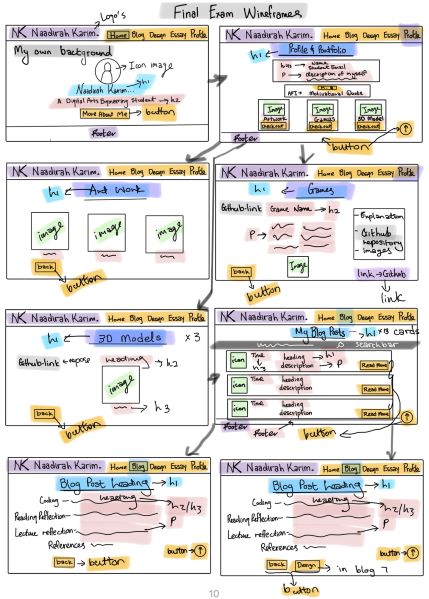 Final Exam Wireframes
Logo's
NK Naadirah Karim. Home Blog Design Essay Profile
My own background
Icon image
Naadirah Karim... h1
A Digital Arts Engineering Student h2
More About Me button
footer
NK Naadirah Karim. Home Blog Design Essay Profile
h1 Profile & Portfolio
Name
Student Email
P description of myself
API Motivational Quote
Image Image Image
Artwork Games 3D Model
Check out Check out Check out
footer
button
NK Naadirah Karim. Home Blog Design Essay Profile
h1 Art Work
image image image
back
button
NK Naadirah Karim. Home Blog Design Essay Profile
h1 Games
Github-link Game Name h2
P
Image
- Explanation
- Github
repository
- images
link Github
back
button
link
NK Naadirah Karim. Home Blog Design Essay Profile
h1 3D Models x3
Github-link heading h2
image
h3
back
button
NK Naadirah Karim. Home Blog Design Essay Profile
My Blog Posts h1 x8 cards
Search bar
icon Time heading h1
h3 description P Read More
icon Time heading
description Read More
icon Time heading
description Read More
footer footer button
NK Naadirah Karim. Home Blog Design Essay Profile
Blog Post heading h1
Coding heading h2/h3
Reading Reflection
P
Lecture reflection
References
button
back button
NK Naadirah Karim. Home Blog Design Essay Profile
Blog Post heading h1
Coding heading h2/h3
Reading Reflection
P
Lecture reflection
References
button
back Design in blog 7
button
10